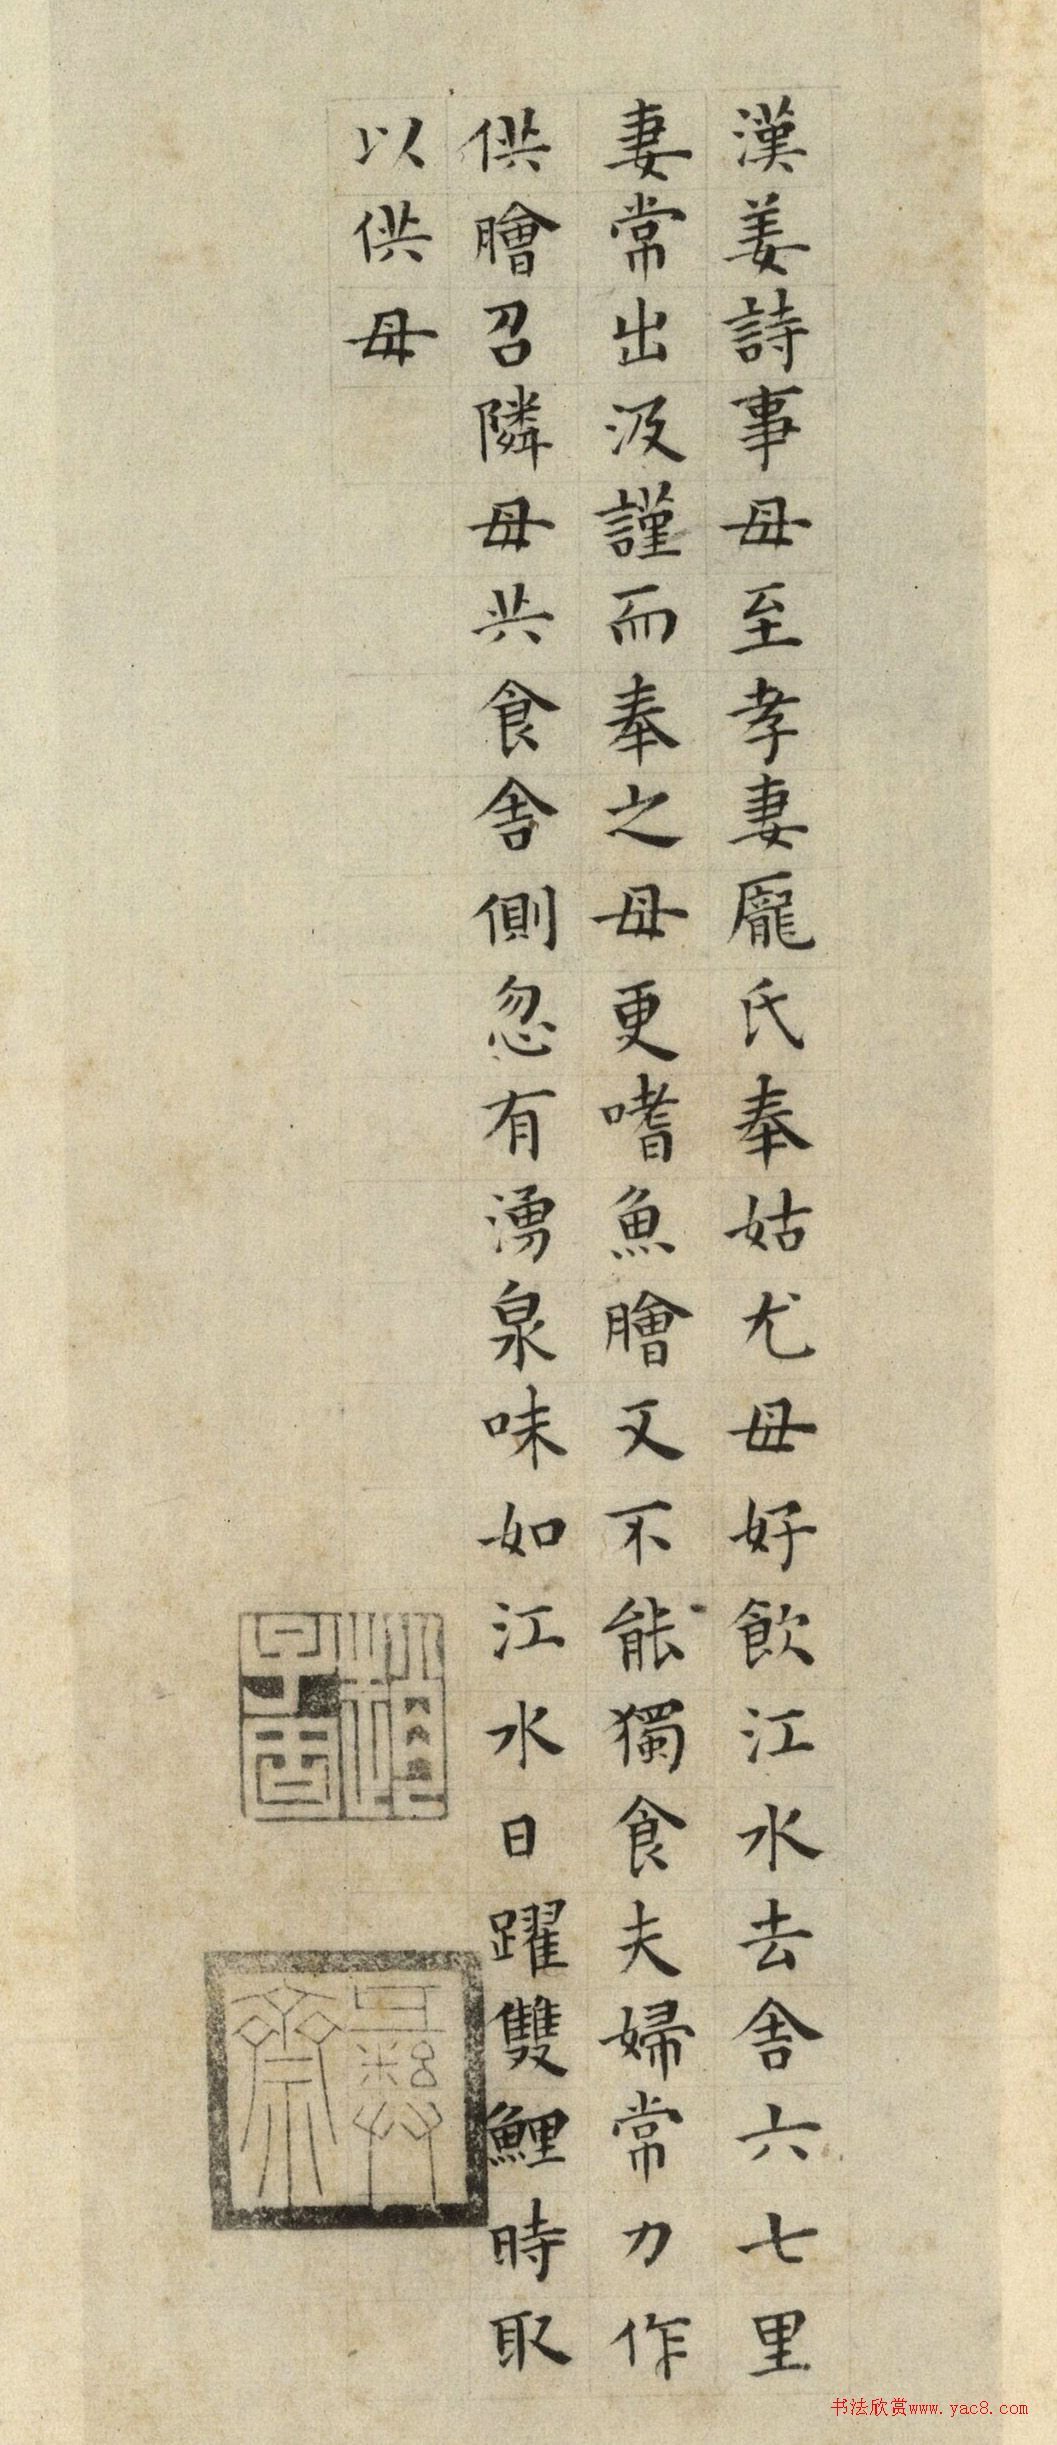 漢姜詩事母至孝妻龐氏奉姑尤母好飲江水去舍六七里
妻常出汲謹而奉之母更嗜魚膾又不能獨食夫婦常力作
供膾召隣母共食舍側忽有湧泉味如江水日躍雙鯉時取
以供母
书法欣赏www.yac8.com